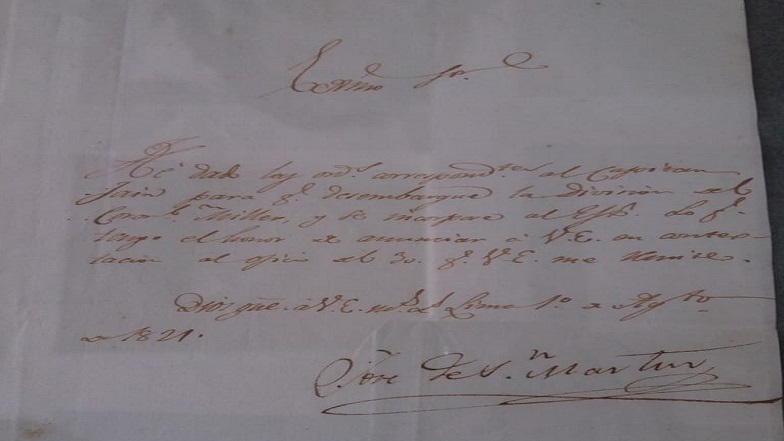 Exmo Sr.
He dado las ords. correspondtes al Capitan
para q.e desembarque la Division del
Coronl. Miller, y se incorpore al Exto. Lo q.e
tengo el honor de anunciar á V.E. en contes-
tacion al oficio del 30. q.e V.E. me remite.
Dios gue. á V.E. ms. as. Lima 1o. de Agto.
de 1821.
Jose de Sn. Martin